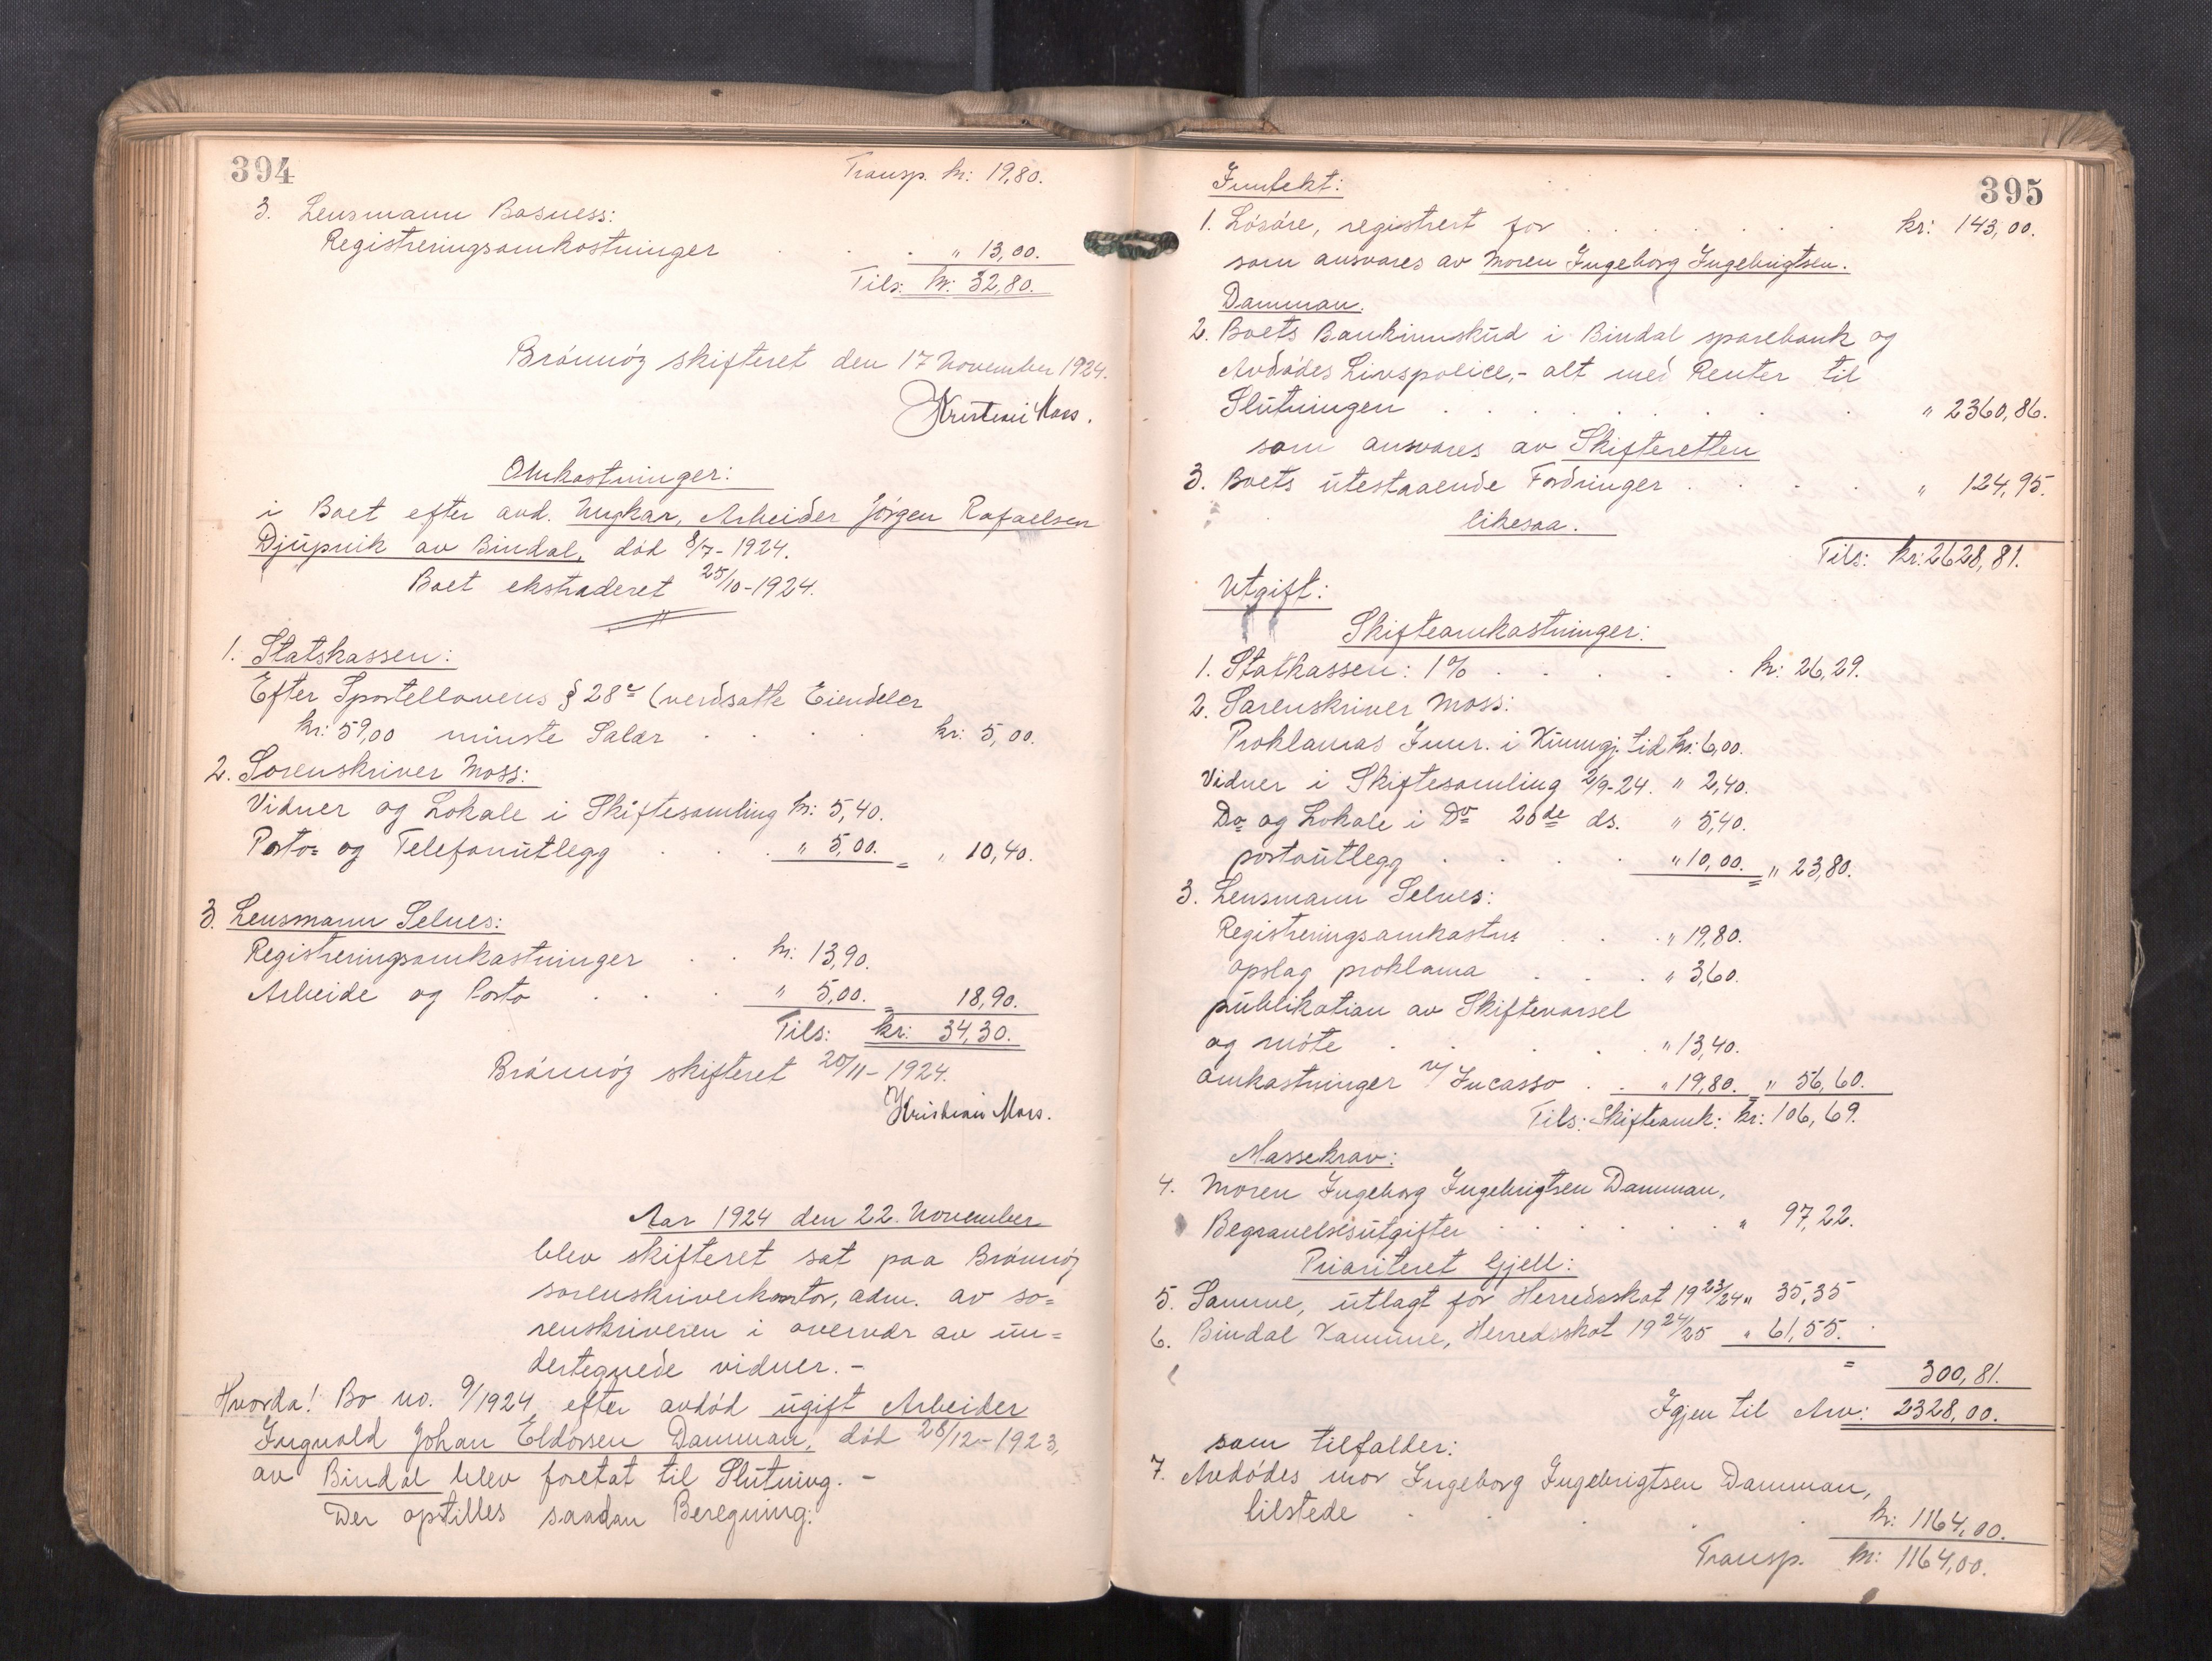 394
Transp. kr: 19,80.
3. Lensmann Bosness:
Registreringsomkostninger . . . " 13,00.
Tils: kr: 32,80.
Brönnöy skifteret den 17 November 1924.
Kristian Moss.
Omkostninger:
i Boet efter avd. Ungkar, Arbeider Jörgen Rafaelsen
Djupvik av Bindal, död 8/7-1924.
Boet ekstraderet 25/10-1924.
1. Statskassen:
Efter Sportellovens § 28 (verdsatte Eiendeler
kr: 59,00 minste Salær . . . . kr: 5,00.
2. Sorenskriver Moss:
Vidner og Lokale i Skiftesamling kr: 5,40.
Porto= og Telefonutlegg . . . " 5,00. = " 10,40.
3. Lensmann Selnes:
Registreringsomkostninger . . kr: 13,90.
Arbeide og Porto . . . " 5,00. = 18,90.
Tils: kr: 34,30.
Brönnöy skifteret 25/11-1924.
Kristian Moss.
Aar 1924 den 22. November
blev skifteret sat paa Brönnöy
sorenskriverkontor, adm. av so=
renskriveren i overvær av un=
dertegnede vidner.-
Hvorda! Bo no. 9/1924 efter avdöd ugift Arbeider
Ingvald Johan Eldörsen Damman, död 28/12-1923,
av Bindal blev foretat til Slutning.-
Der opstilles saadan Beregning:
395
Inntekt:
1. Lösöre, registrert for . . . . . . . kr: 143,00.
som ansvares av Moren Ingeborg Ingebrigtsen.
Damman.
2. Boets Bankinnskud i Bindal sparebank og
Avdödes Livspolice,- alt med Renter til
Slutningen . . . . . . . . " 2360,86.
som ansvares av Skifteretten
3. Boets utestaaende Fordringer . . . . " 124,95.
likesaa.
Tils: kr: 2628,81.
Utgift:
Skifteomkostninger:
1. Statkassen: 1% . . . . . kr: 26,29.
2. Sorenskriver Moss:
Proklamas Innr. i Kunngj. tid kr: 6,00.
Vidner i Skiftesamling 2/9-24. " 2,40.
Do og Lokale i Do 25de ds. " 5,40.
portoutlegg . . . . " 10,00. = " 23,80.
3. Lensmann Selnes:
Registreringsomkostn. . . . " 19,80.
opslag proklama . . . " 3,60.
publikation av Skiftevarsel
og möte . . . . . " 13,40.
omkostninger v/ Incasso . . " 19,80. = " 56,60.
Tils: Skifteomk: kr: 106,69.
Massekrav:
4. Moren Ingeborg Ingebrigtsen Damman,
Begravelsesutgifter . . . . . . " 97,22.
Prioriteret Gjell:
5. Samme, utlagt for Herredsskat 1923/24 " 35,35
6. Bindal Kamune, Herredsskat 1924/25 " 61,55.
= 300,81.
Igjen til Arv: 2328,00.
som tilfalder:
7. Avdödes mor Ingeborg Ingebrigtsen Damman,
tilstede . . . . kr: 1164,00.
Transp. kr: 1164,00.